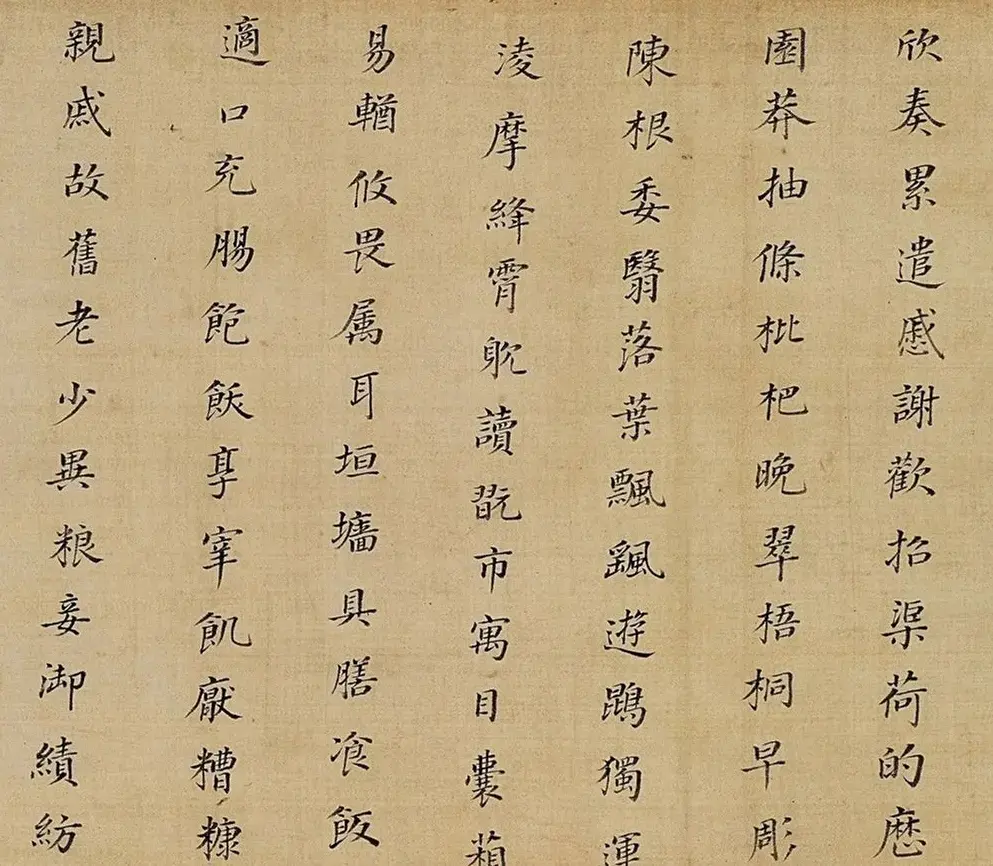 欣奏累遣慼謝歡招渠荷的歷
園莽抽條枇杷晚翠梧桐早彫
陳根委翳落葉飄飖遊鵾獨運
淩摩絳霄躭讀翫市寓目囊箱
易輶攸畏属耳垣墻具膳飡飯
適口充腸飽飫享宰飢厭糟糠
親戚故舊老少異粮妾御績紡